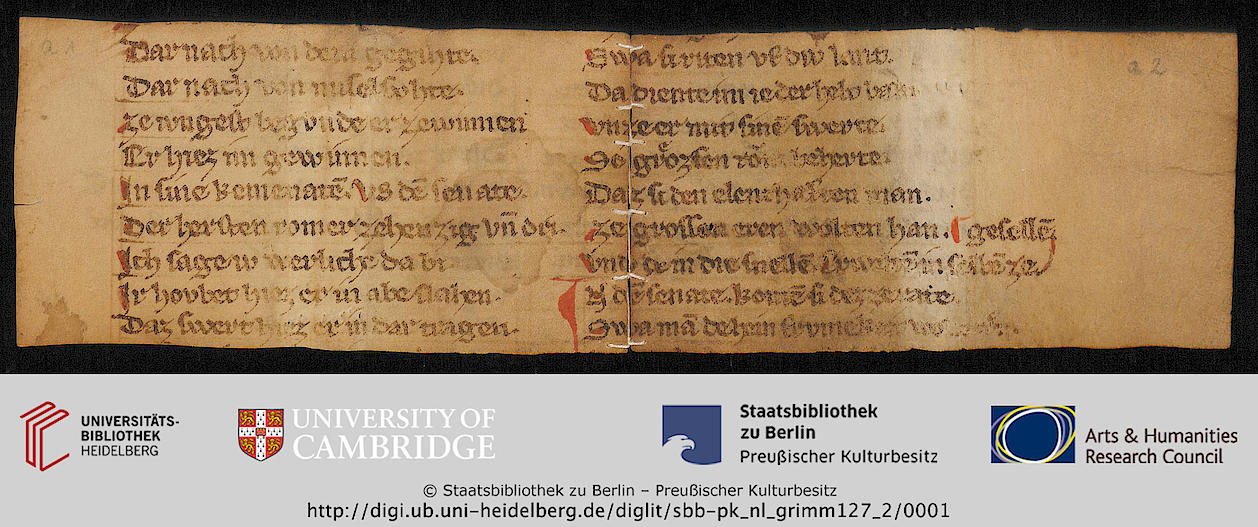 a 1
Dar nach von dem gegihte.
Dar nach von miselsohte.
ze iungest begvnde er zewinnen
Er hiez im gewinnen.
In sine kemenatē. Vs dē senate.
Der hersten romer zehenzig vn̄ dri.
Ich sage iv werliche da bi
Ir hovbet hiez er in abe slahen.
Daz swert hiez er in dar tragen.
a 2
Swa si riten vf div lant.
Da diente im ieder helt
vnze er mit sinē swerte.
So grozsen rom beherte.
Daz si den elenthaften man.
ze grossen eren wolten han.
gesellē
vnt die snellē.
Zv dē senate. komē si
Swa mā dehein
UNIVERSITÄTS-
BIBLIOTHEK
HEIDELBERG
UNIVERSITY OF
CAMBRIDGE
Staatsbibliothek
zu Berlin
Preußischer Kulturbesitz
Arts & Humanities
Research Council
© Staatsbibliothek zu Berlin – Preußischer Kulturbesitz
http://digi.ub.uni-heidelberg.de/diglit/sbb-pk_nl_grimm127_2/0001